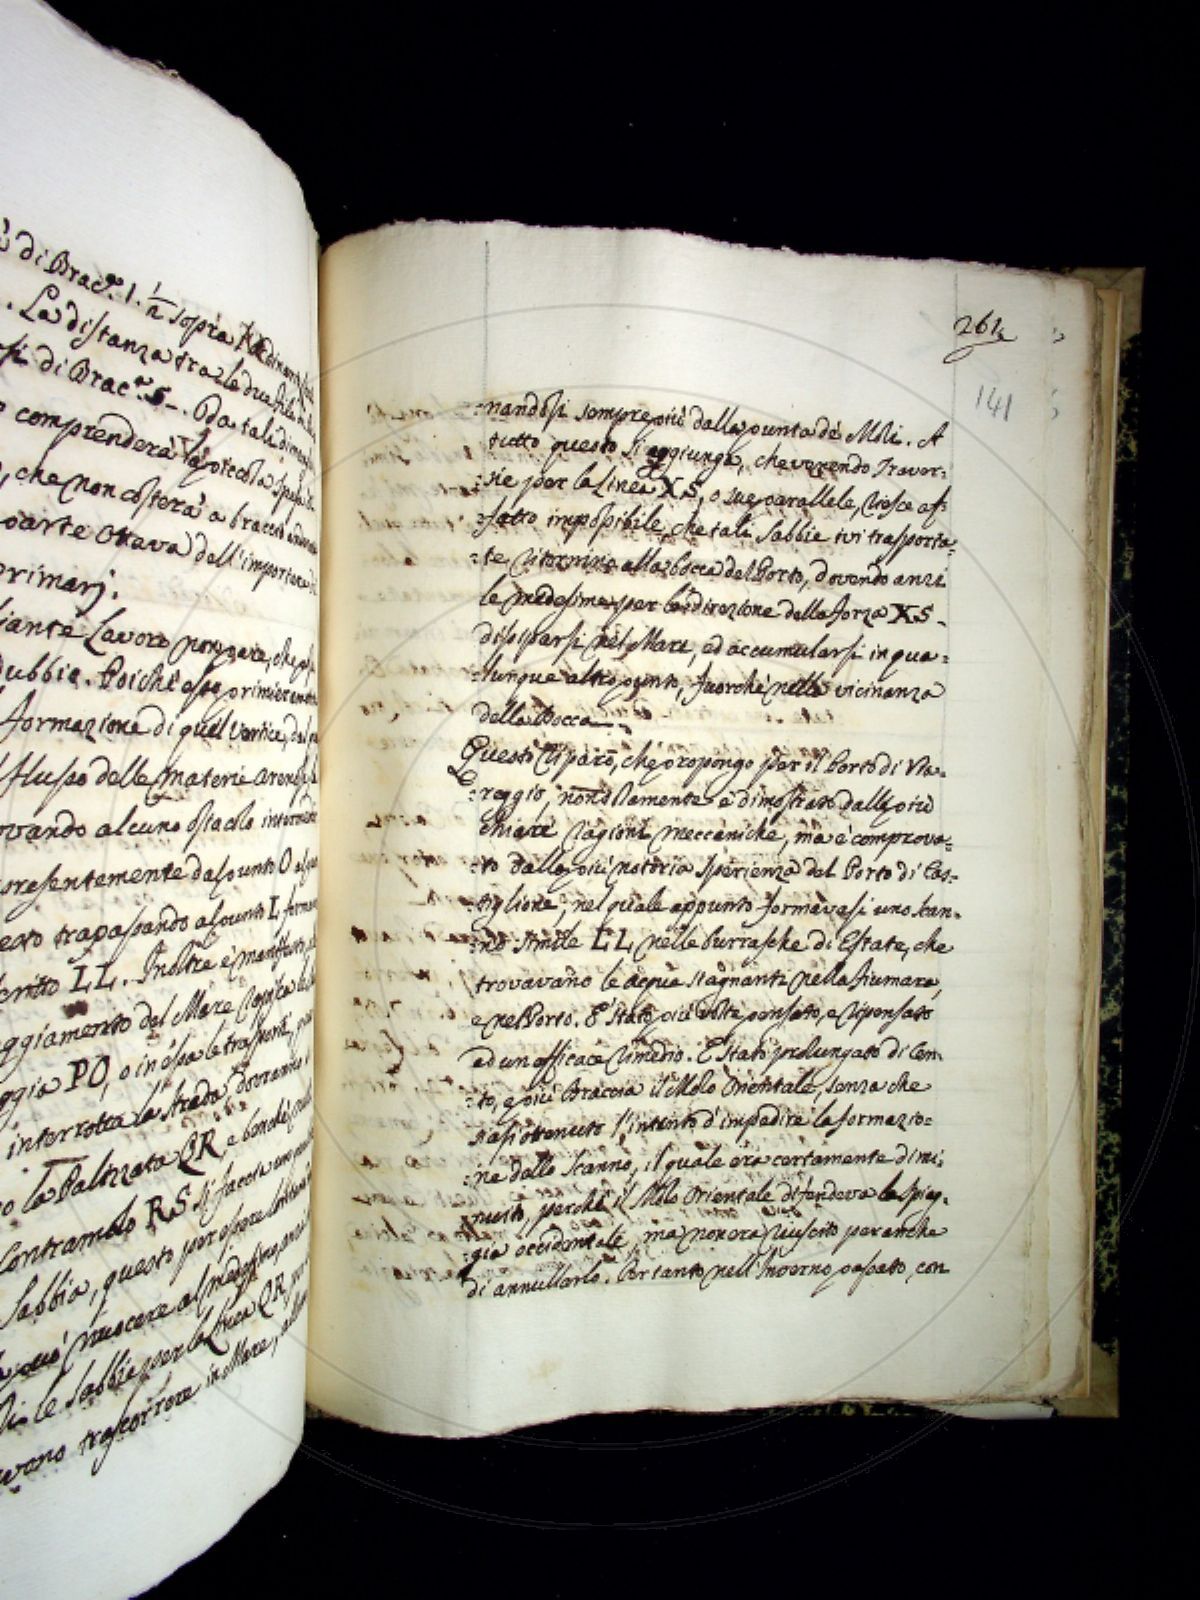 di Brac.ª 1. 1/2 sopra
. La distanza tra le due file
di Brac.ª 5_. Da tali
comprenderà la piccola spesa
, che non costerà a braccio
parte Ottava dell'importare
primarj.
iante Lavoro
dubbio. Poiché esso primieramente
formazione di quel Vortice, dal
flusso delle materie
ovando alcuno ostacolo
presentemente dal punto O
esto trapassando al punto L
critto LL. Inoltre è manifesto,
eggiamento del Mare
ggia PO, o in essa le trasporti,
interrotta la strada dovranno
la Palizzata QR, e benché
Contramolo RS si faccia
Sabbia, questo per essere
può nuocere al medesimo
le Sabbie per la linea QR,
vono trascorrere in Mare,
261
141
=nandosi sempre più dalla punta de Moli. A
tutto questo si aggiunga, che venendo Traver=
=sie per la Linea XS, o sue parallele, riesce af=
=fatto impossibile, che tali Sabbie ivi trasporta=
=te ritornino alla bocca del Porto, dovendo anzi
le medesime per la direzione della forza XS_
disiparsi nel Mare, ed accumularsi in qua=
=lunque altro punto, fuorchè nella vicinanza
della Bocca_.
Questo Riparo, che propongo per il Porto di Via=
=reggio, non solamente è dimostrato dalle più
chiare ragioni meccaniche, ma è comprova=
=to dalla più notoria sperienza del Porto di Cas=
=tiglione, nel quale appunto formavasi uno Scan=
=no simile LL nelle burrasche di Estate, che
trovavano le acque stagnanti nella fiumara,
e nel Porto. È stato più volte pensato, e ripensato
ad un efficace rimedio. È stato prolungato di Cen=
=to, e più Braccia il Molo Orientale, senza che
siasi ottenuto l'intento d'impedire la formazio=
=ne dello Scanno, il quale era certamente dimi=
=nuito, perchè il Molo Orientale difendeva la spiag=
gia occidentale, ma non era riuscito per anche
di annullarlo. Pertanto nell'Inverno passato, con